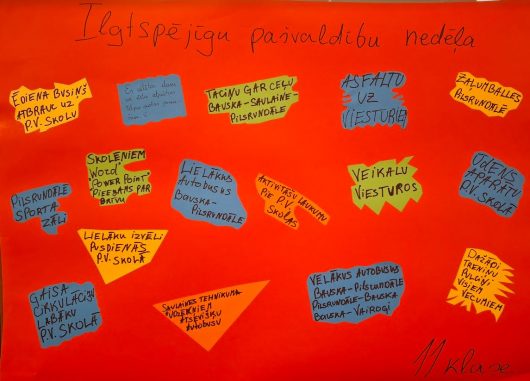 Ilgtspējīgu pašvaldību nedēļa
ĒDIENA BUSIŅŠ
ATBRAUC UZ
P.V. SKOLU
TACIŅU GAR CEĻU
BAUSKA-SAULAINE-
PILSRUNDĀLE
ASFALTU
UZ
VIESTURIEM
ZAĻUMBALLES
PILSRUNDĀLĒ
PILSRUNDĀLĒ
SPORTA
ZĀLI
SKOLĒNIEM
"WORD"
"POWER POINT"
PIEEJAMS PAR
BRĪVU
LIELĀKUS
AUTOBUSUS
BAUSKA-
PILSRUNDĀLE
AKTIVITĀŠU LAUKUMU
PIE P.V.
SKOLAS
VEIKALU
VIESTUROS
ŪDENS
APARĀTU
P.V. SKOLĀ
LIELĀKU IZVĒLI
PUSDIENĀS
P.V. SKOLĀ
GAISA
CIRKULĀCIJU
LABĀKU
P.V. SKOLĀ
SAULAINES TEHNIKUMA
AUDZĒKŅIEM
ATSEVIŠĶU
AUTOBUSU
VĒLĀKUS AUTOBUSUS
BAUSKA-PILSRUNDĀLE
PILSRUNDĀLE-BAUSKA
BAUSKA-VAIROGI
DAŽĀDI
TRENIŅU
PULCIŅI
VISIEM
VECUMIEM
11. klase